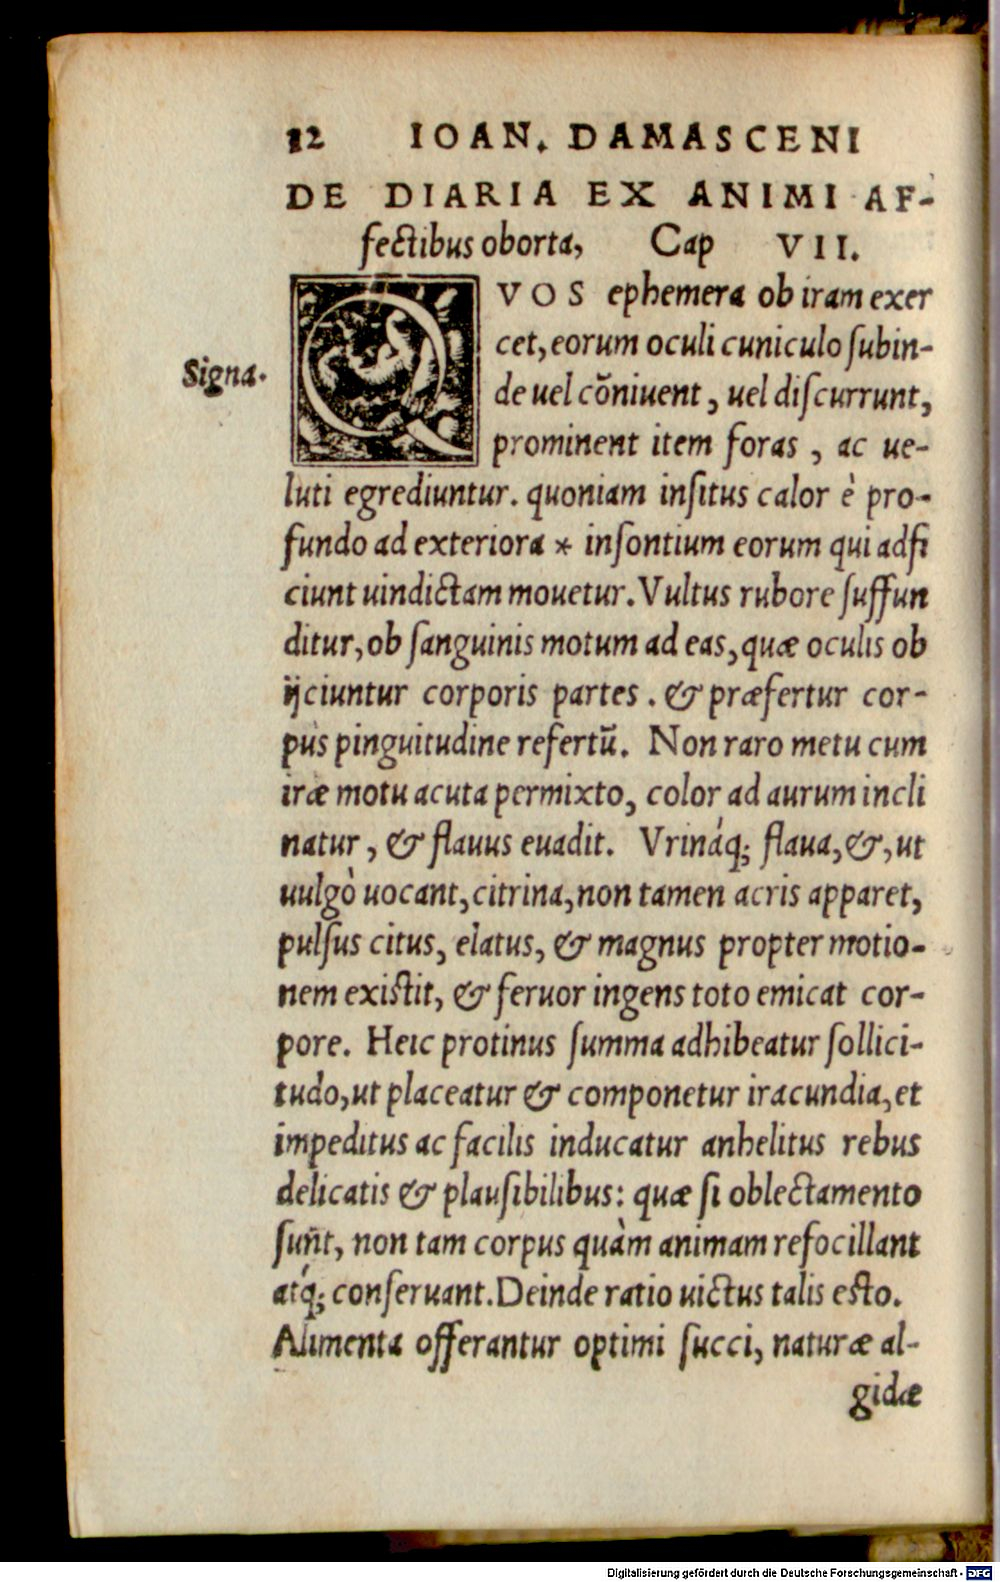 12 IOAN. DAMASCENI
DE DIARIA EX ANIMI AF-
fectibus oborta, Cap VII.
QVOS ephemera ob iram exer
cet, eorum oculi cuniculo ſubin-
Signa.
de uel cõniuent, uel diſcurrunt,
prominent item foras, ac ue-
luti egrediuntur. quoniam inſitus calor è pro-
fundo ad exteriora * inſontium eorum qui adfi
ciunt uindictam mouetur. Vultus rubore ſuffun
ditur, ob ſanguinis motum ad eas, quæ oculis ob
ijciuntur corporis partes. & præfertur cor-
pus pinguitudine refertũ. Non raro metu cum
iræ motu acuta permixto, color ad aurum incli
natur, & flauus euadit. Vrináq; flaua, &, ut
uulgò uocant, citrina, non tamen acris apparet,
pulſus citus, elatus, & magnus propter motio-
nem exiſtit, & feruor ingens toto emicat cor-
pore. Heic protinus ſumma adhibeatur ſollici-
tudo, ut placeatur & componetur iracundia, et
impeditus ac facilis inducatur anhelitus rebus
delicatis & plauſibilibus: quæ ſi oblectamento
ſunt, non tam corpus quàm animam refocillant
atq́; conſeruant. Deinde ratio uictus talis eſto.
Alimenta offerantur optimi ſucci, naturæ al-
gidæ
Digitalisierung gefördert durch die Deutsche Forschungsgemeinschaft - DFG